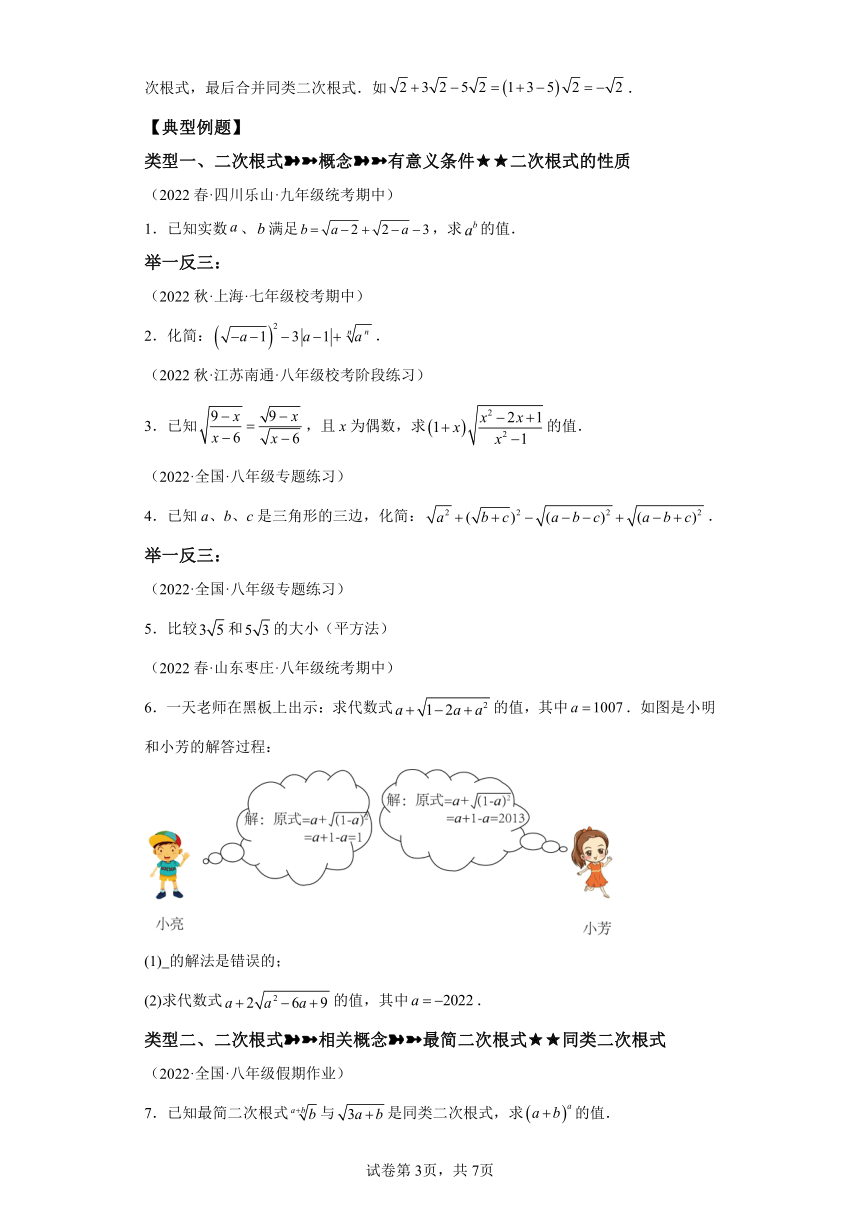 次根式，最后合并同类二次根式．如√2+3√2−5√2=(1+3−5)√2=−√2．
【典型例题】
类型一、二次根式➽➼概念➽➼有意义条件★★二次根式的性质
（2022春·四川乐山·九年级统考期中）
1．已知实数a、b满足b=√(a−2)+√(2−a)−3，求a^b的值．
举一反三：
（2022秋·上海·七年级校考期中）
2．化简：(√(−a−1))²−3|a−1|+ⁿ√(aⁿ)．
（2022秋·江苏南通·八年级校考阶段练习）
3．已知√((9−x)/(x−6))=√(9−x)/√(x−6)，且x为偶数，求(1+x)√((x²−2x+1)/(x²−1))的值．
（2022·全国·八年级专题练习）
4．已知a、b、c是三角形的三边，化简：√(a²)+(√(b+c))²−√((a−b−c)²)+√((a−b+c)²)．
举一反三：
（2022·全国·八年级专题练习）
5．比较3√5和5√3的大小（平方法）
（2022春·山东枣庄·八年级统考期中）
6．一天老师在黑板上出示：求代数式a+√(1−2a+a²)的值，其中a=1007．如图是小明
和小芳的解答过程：
解：原式=a+√(1-a)²
=a+1-a=1
小亮
解：原式=a+√(1-a)²
=a+1-a=2013
小芳
(1)_的解法是错误的；
(2)求代数式a+2√(a²−6a+9)的值，其中a=−2022．
类型二、二次根式➽➼相关概念➽➼最简二次根式★★同类二次根式
（2022·全国·八年级假期作业）
7．已知最简二次根式ᵃ⁺ᵇ√b与√(3a+b)是同类二次根式，求(a+b)^a的值．
试卷第3页，共7页